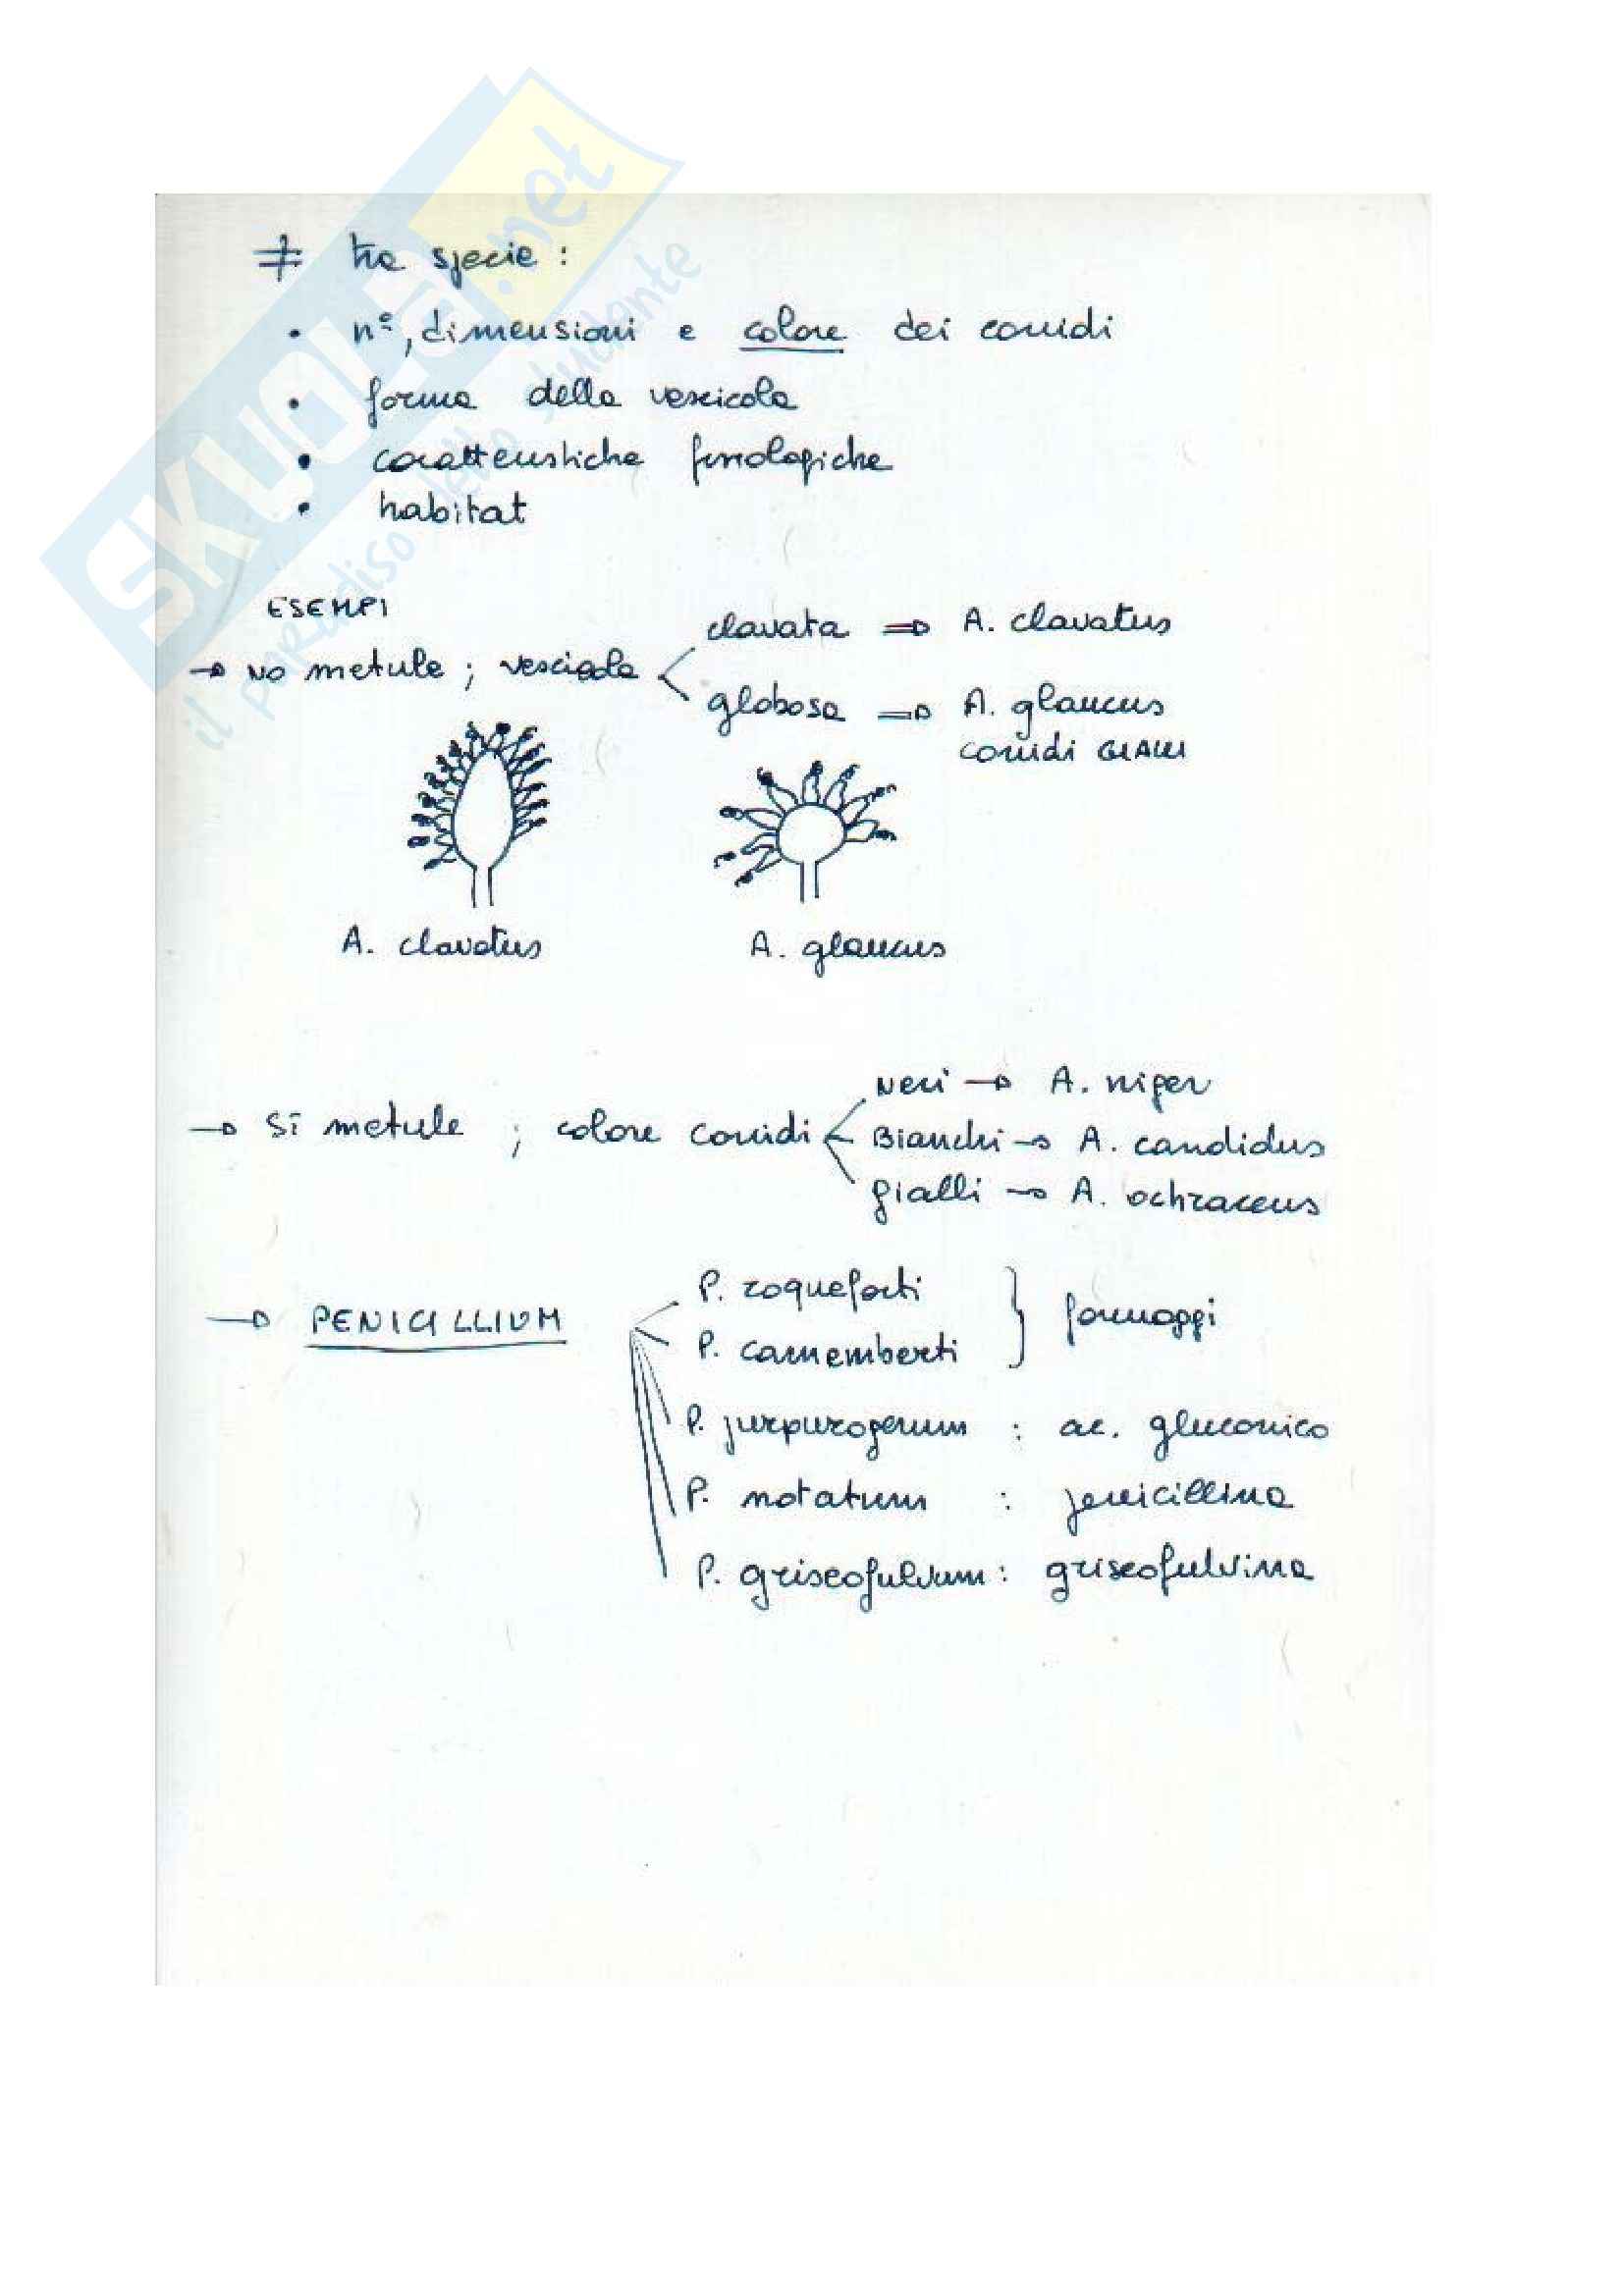 SKUOLA.net
il paradiso dello studente
≠ tra specie :
• n°, dimensioni e colore dei conidi
• forma della vescicola
• caratteristiche fisiologiche
• habitat
ESEMPI
→ NO metule ; vescicola
clavata ⇒ A. clavatus
globosa ⇒ A. glaucus
conidi GIALLI
A. clavatus
A. glaucus
→ Sì metule ; colore conidi
neri → A. niger
Bianchi → A. candidus
gialli → A. ochraceus
→ PENICILLIUM
P. roqueforti
P. camemberti
} formaggi
P. purpurogenum : ac. gluconico
P. notatum : penicillina
P. griseofulvum : griseofulvina